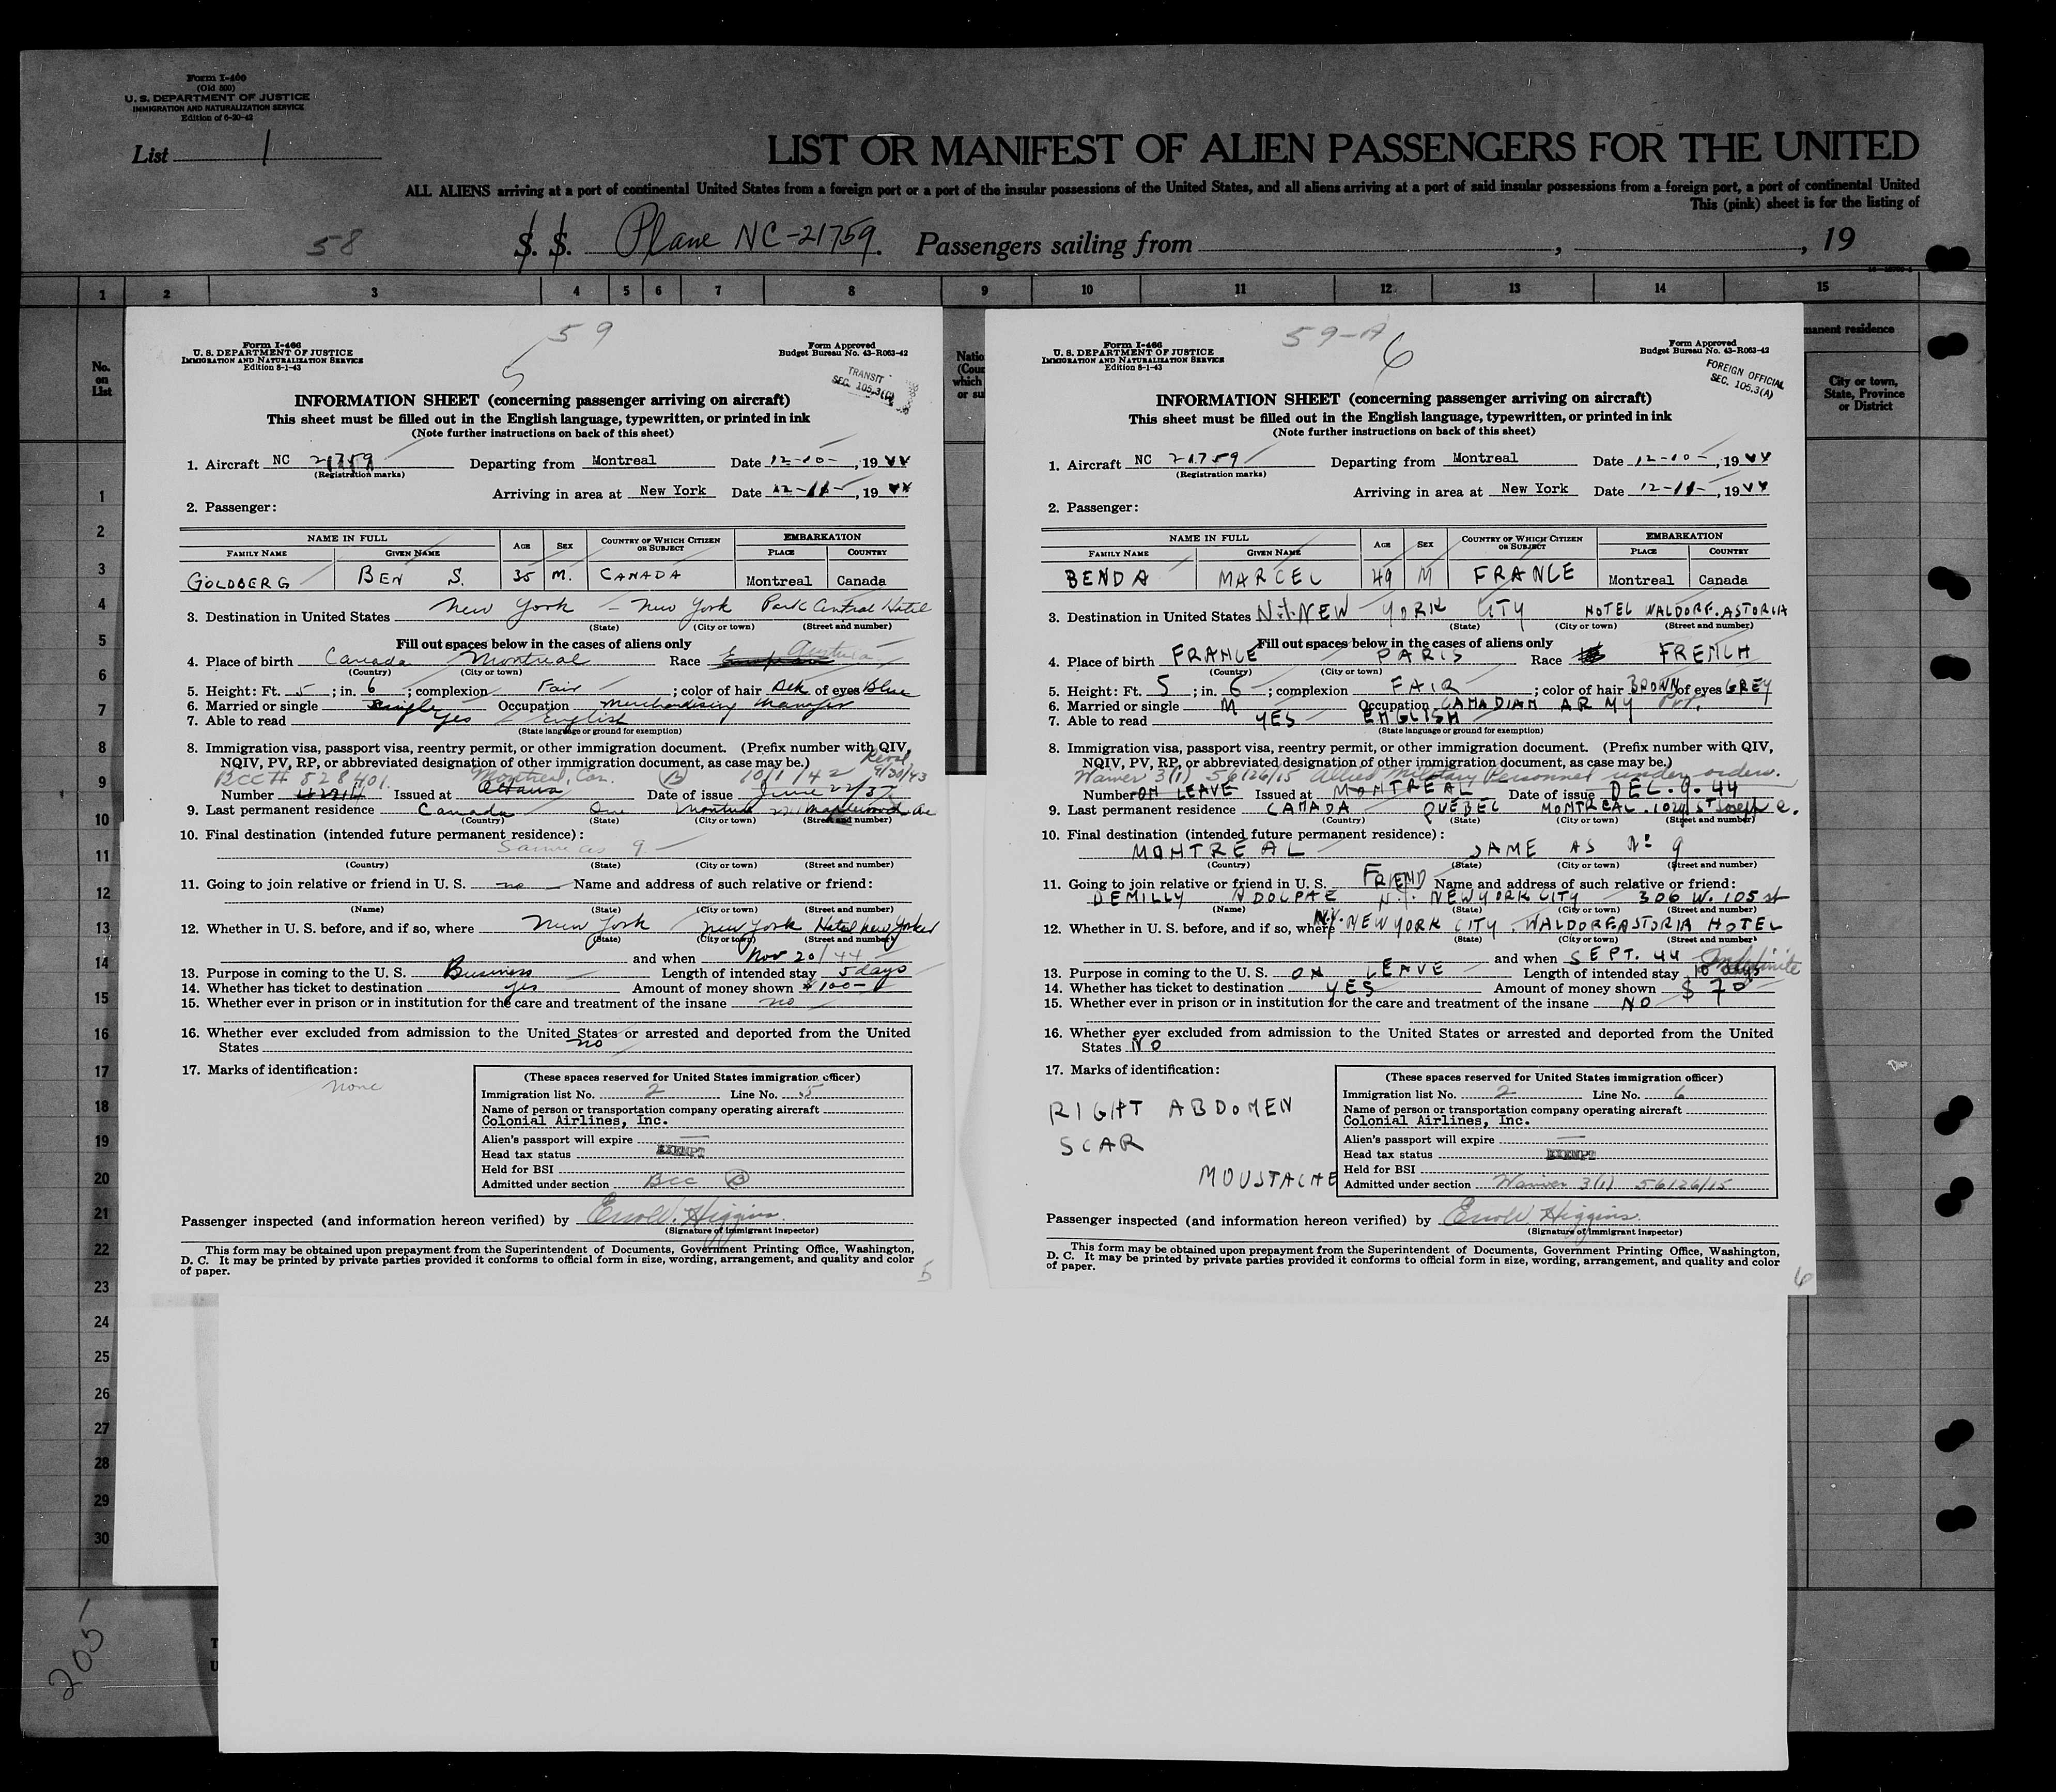 Form I-460
(Old 500)
U. S. DEPARTMENT OF JUSTICE
IMMIGRATION AND NATURALIZATION SERVICE
Edition of 6-20-42
List 1
LIST OR MANIFEST OF ALIEN PASSENGERS FOR THE UNITED
ALL ALIENS arriving at a port of continental United States from a foreign port or a port of the insular possessions of the United States, and all aliens arriving at a port of said insular possessions from a foreign port, a port of continental United
This (pink) sheet is for the listing of
58 S. S. Plane NC-21759. Passengers sailing from , , 19
1 2 3 4 5 6 7 8 9 10 11 12 13 14 15
No. on List
Natio
(Cou
which
or su
manent residence
City or town,
State, Province
or District
1
2
3
4
5
6
7
8
9
10
11
12
13
14
15
16
17
18
19
20
21
22
23
24
25
26
27
28
29
30
205
59
5
Form I-466
U. S. DEPARTMENT OF JUSTICE
IMMIGRATION AND NATURALIZATION SERVICE
Edition 8-1-43
Form Approved
Budget Bureau No. 43-R063-42
TRANSIT
SEC. 105.3(C)
INFORMATION SHEET (concerning passenger arriving on aircraft)
This sheet must be filled out in the English language, typewritten, or printed in ink
(Note further instructions on back of this sheet)
1. Aircraft NC 21759 Departing from Montreal Date 12-10-, 1944
(Registration marks)
Arriving in area at New York Date 12-11-, 1944
2. Passenger:
NAME IN FULL AGE SEX COUNTRY OF WHICH CITIZEN OR SUBJECT EMBARKATION
FAMILY NAME GIVEN NAME PLACE COUNTRY
GOLDBERG BEN S. 35 M. CANADA Montreal Canada
3. Destination in United States New York - New York Park Central Hotel
(State) (City or town) (Street and number)
Fill out spaces below in the cases of aliens only
4. Place of birth Canada Montreal Race
(Country) (City or town)
5. Height: Ft. 5; in. 6; complexion Fair; color of hair Dk of eyes Blue
6. Married or single Single Occupation Merchandising Manager
7. Able to read yes English
(State language or ground for exemption)
8. Immigration visa, passport visa, reentry permit, or other immigration document. (Prefix number with QIV,
NQIV, PV, RP, or abbreviated designation of other immigration document, as case may be.)
BCC # 828401. Montreal, Can. (B) 10/1/42 9/30/43
Number Issued at Ottawa Date of issue June 22/37
9. Last permanent residence Canada Que Montreal Maplewood Ave
(Country) (State) (City or town) (Street and number)
10. Final destination (intended future permanent residence):
Same as 9.
(Country) (State) (City or town) (Street and number)
11. Going to join relative or friend in U. S. no Name and address of such relative or friend:
(Name) (State) (City or town) (Street and number)
12. Whether in U. S. before, and if so, where New York New York Hotel New Yorker
(State) (City or town) (Street and number)
and when Nov 20/44
13. Purpose in coming to the U. S. Business Length of intended stay 5 days
14. Whether has ticket to destination yes Amount of money shown $100-
15. Whether ever in prison or in institution for the care and treatment of the insane no
16. Whether ever excluded from admission to the United States or arrested and deported from the United
States no
17. Marks of identification:
none
(These spaces reserved for United States immigration officer)
Immigration list No. 2 Line No. 5
Name of person or transportation company operating aircraft
Colonial Airlines, Inc.
Alien's passport will expire —
Head tax status EXEMPT
Held for BSI
Admitted under section BCC (B)
Passenger inspected (and information hereon verified) by Errol W. Higgins.
(Signature of immigrant inspector)
This form may be obtained upon prepayment from the Superintendent of Documents, Government Printing Office, Washington,
D. C. It may be printed by private parties provided it conforms to official form in size, wording, arrangement, and quality and color
of paper.
5
59-A
6
Form I-466
U. S. DEPARTMENT OF JUSTICE
IMMIGRATION AND NATURALIZATION SERVICE
Edition 8-1-43
Form Approved
Budget Bureau No. 43-R063-42
FOREIGN OFFICIAL
SEC. 105.3(A)
INFORMATION SHEET (concerning passenger arriving on aircraft)
This sheet must be filled out in the English language, typewritten, or printed in ink
(Note further instructions on back of this sheet)
1. Aircraft NC 21759 Departing from Montreal Date 12-10-, 1944
(Registration marks)
Arriving in area at New York Date 12-11-, 1944
2. Passenger:
NAME IN FULL AGE SEX COUNTRY OF WHICH CITIZEN OR SUBJECT EMBARKATION
FAMILY NAME GIVEN NAME PLACE COUNTRY
BENDA MARCEL 49 M FRANCE Montreal Canada
3. Destination in United States N.Y. NEW YORK CITY HOTEL WALDORF. ASTORIA
(State) (City or town) (Street and number)
Fill out spaces below in the cases of aliens only
4. Place of birth FRANCE PARIS Race FRENCH
(Country) (City or town)
5. Height: Ft. 5; in. 6; complexion FAIR; color of hair BROWN of eyes GREY
6. Married or single M Occupation CANADIAN ARMY Pvt.
7. Able to read YES ENGLISH
(State language or ground for exemption)
8. Immigration visa, passport visa, reentry permit, or other immigration document. (Prefix number with QIV,
NQIV, PV, RP, or abbreviated designation of other immigration document, as case may be.)
Waiver 3(1) 56126/15 Allied Military Personnel under orders.
Number ON LEAVE Issued at MONTREAL Date of issue DEC. 9. 44
9. Last permanent residence CANADA QUEBEC MONTREAL. 1029 ST Joseph E.
(Country) (State) (City or town) (Street and number)
10. Final destination (intended future permanent residence):
MONTREAL SAME AS No 9
(Country) (State) (City or town) (Street and number)
11. Going to join relative or friend in U. S. FRIEND Name and address of such relative or friend:
DEMILLY ADOLPHE N.Y. NEW YORK CITY 306 W. 105 st
(Name) (State) (City or town) (Street and number)
12. Whether in U. S. before, and if so, where N.Y. NEW YORK CITY. WALDORF ASTORIA HOTEL
(State) (City or town) (Street and number)
and when SEPT. 44
13. Purpose in coming to the U. S. ON LEAVE Length of intended stay 10 days Indefinite
14. Whether has ticket to destination YES Amount of money shown $ 70
15. Whether ever in prison or in institution for the care and treatment of the insane NO
16. Whether ever excluded from admission to the United States or arrested and deported from the United
States NO
17. Marks of identification:
RIGHT ABDOMEN
SCAR
MOUSTACHE
(These spaces reserved for United States immigration officer)
Immigration list No. 2 Line No. 6
Name of person or transportation company operating aircraft
Colonial Airlines, Inc.
Alien's passport will expire —
Head tax status EXEMPT
Held for BSI
Admitted under section Waiver 3(1) 56126/15
Passenger inspected (and information hereon verified) by Errol W. Higgins.
(Signature of immigrant inspector)
This form may be obtained upon prepayment from the Superintendent of Documents, Government Printing Office, Washington,
D. C. It may be printed by private parties provided it conforms to official form in size, wording, arrangement, and quality and color
of paper.
6